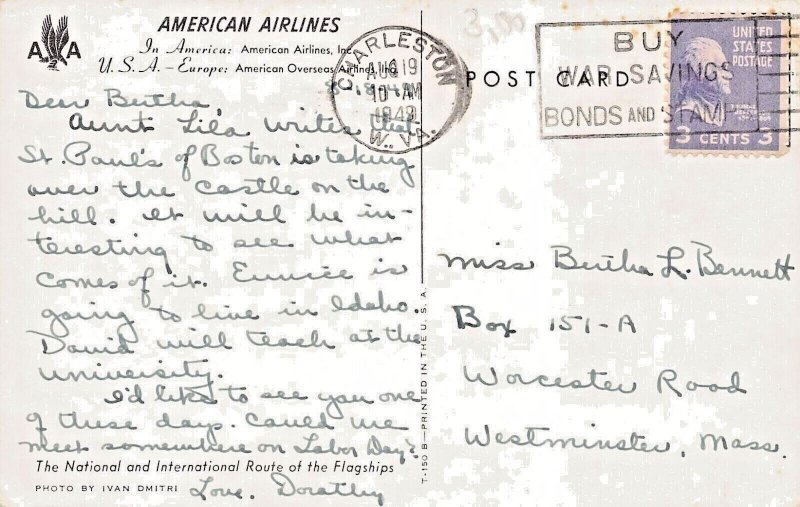 AMERICAN AIRLINES
A A
In America: American Airlines, Inc.
U.S.A. - Europe: American Overseas Airlines,
CHARLESTON
AUG 19
10 AM
W. VA.
POST CARD
BUY
WAR SAVINGS
BONDS AND STAMPS
UNITED
STATES
POSTAGE
3 CENTS 3
Dear Bertha,
Aunt Lila writes that
St. Paul's of Boston is taking
over the castle on the
hill. It will be in-
teresting to see what
comes of it. Eunice is
going to live in Idaho.
David will teach at the
university.
I'd like to see you one
of these days. Could we
meet somewhere on Labor Day?
Love, Dorathy
Miss Bertha L. Bennett
Box 151-A
Worcester Road
Westminster, Mass.
The National and International Route of the Flagships
PHOTO BY IVAN DMITRI
T-150 B—PRINTED IN THE U.S.A.